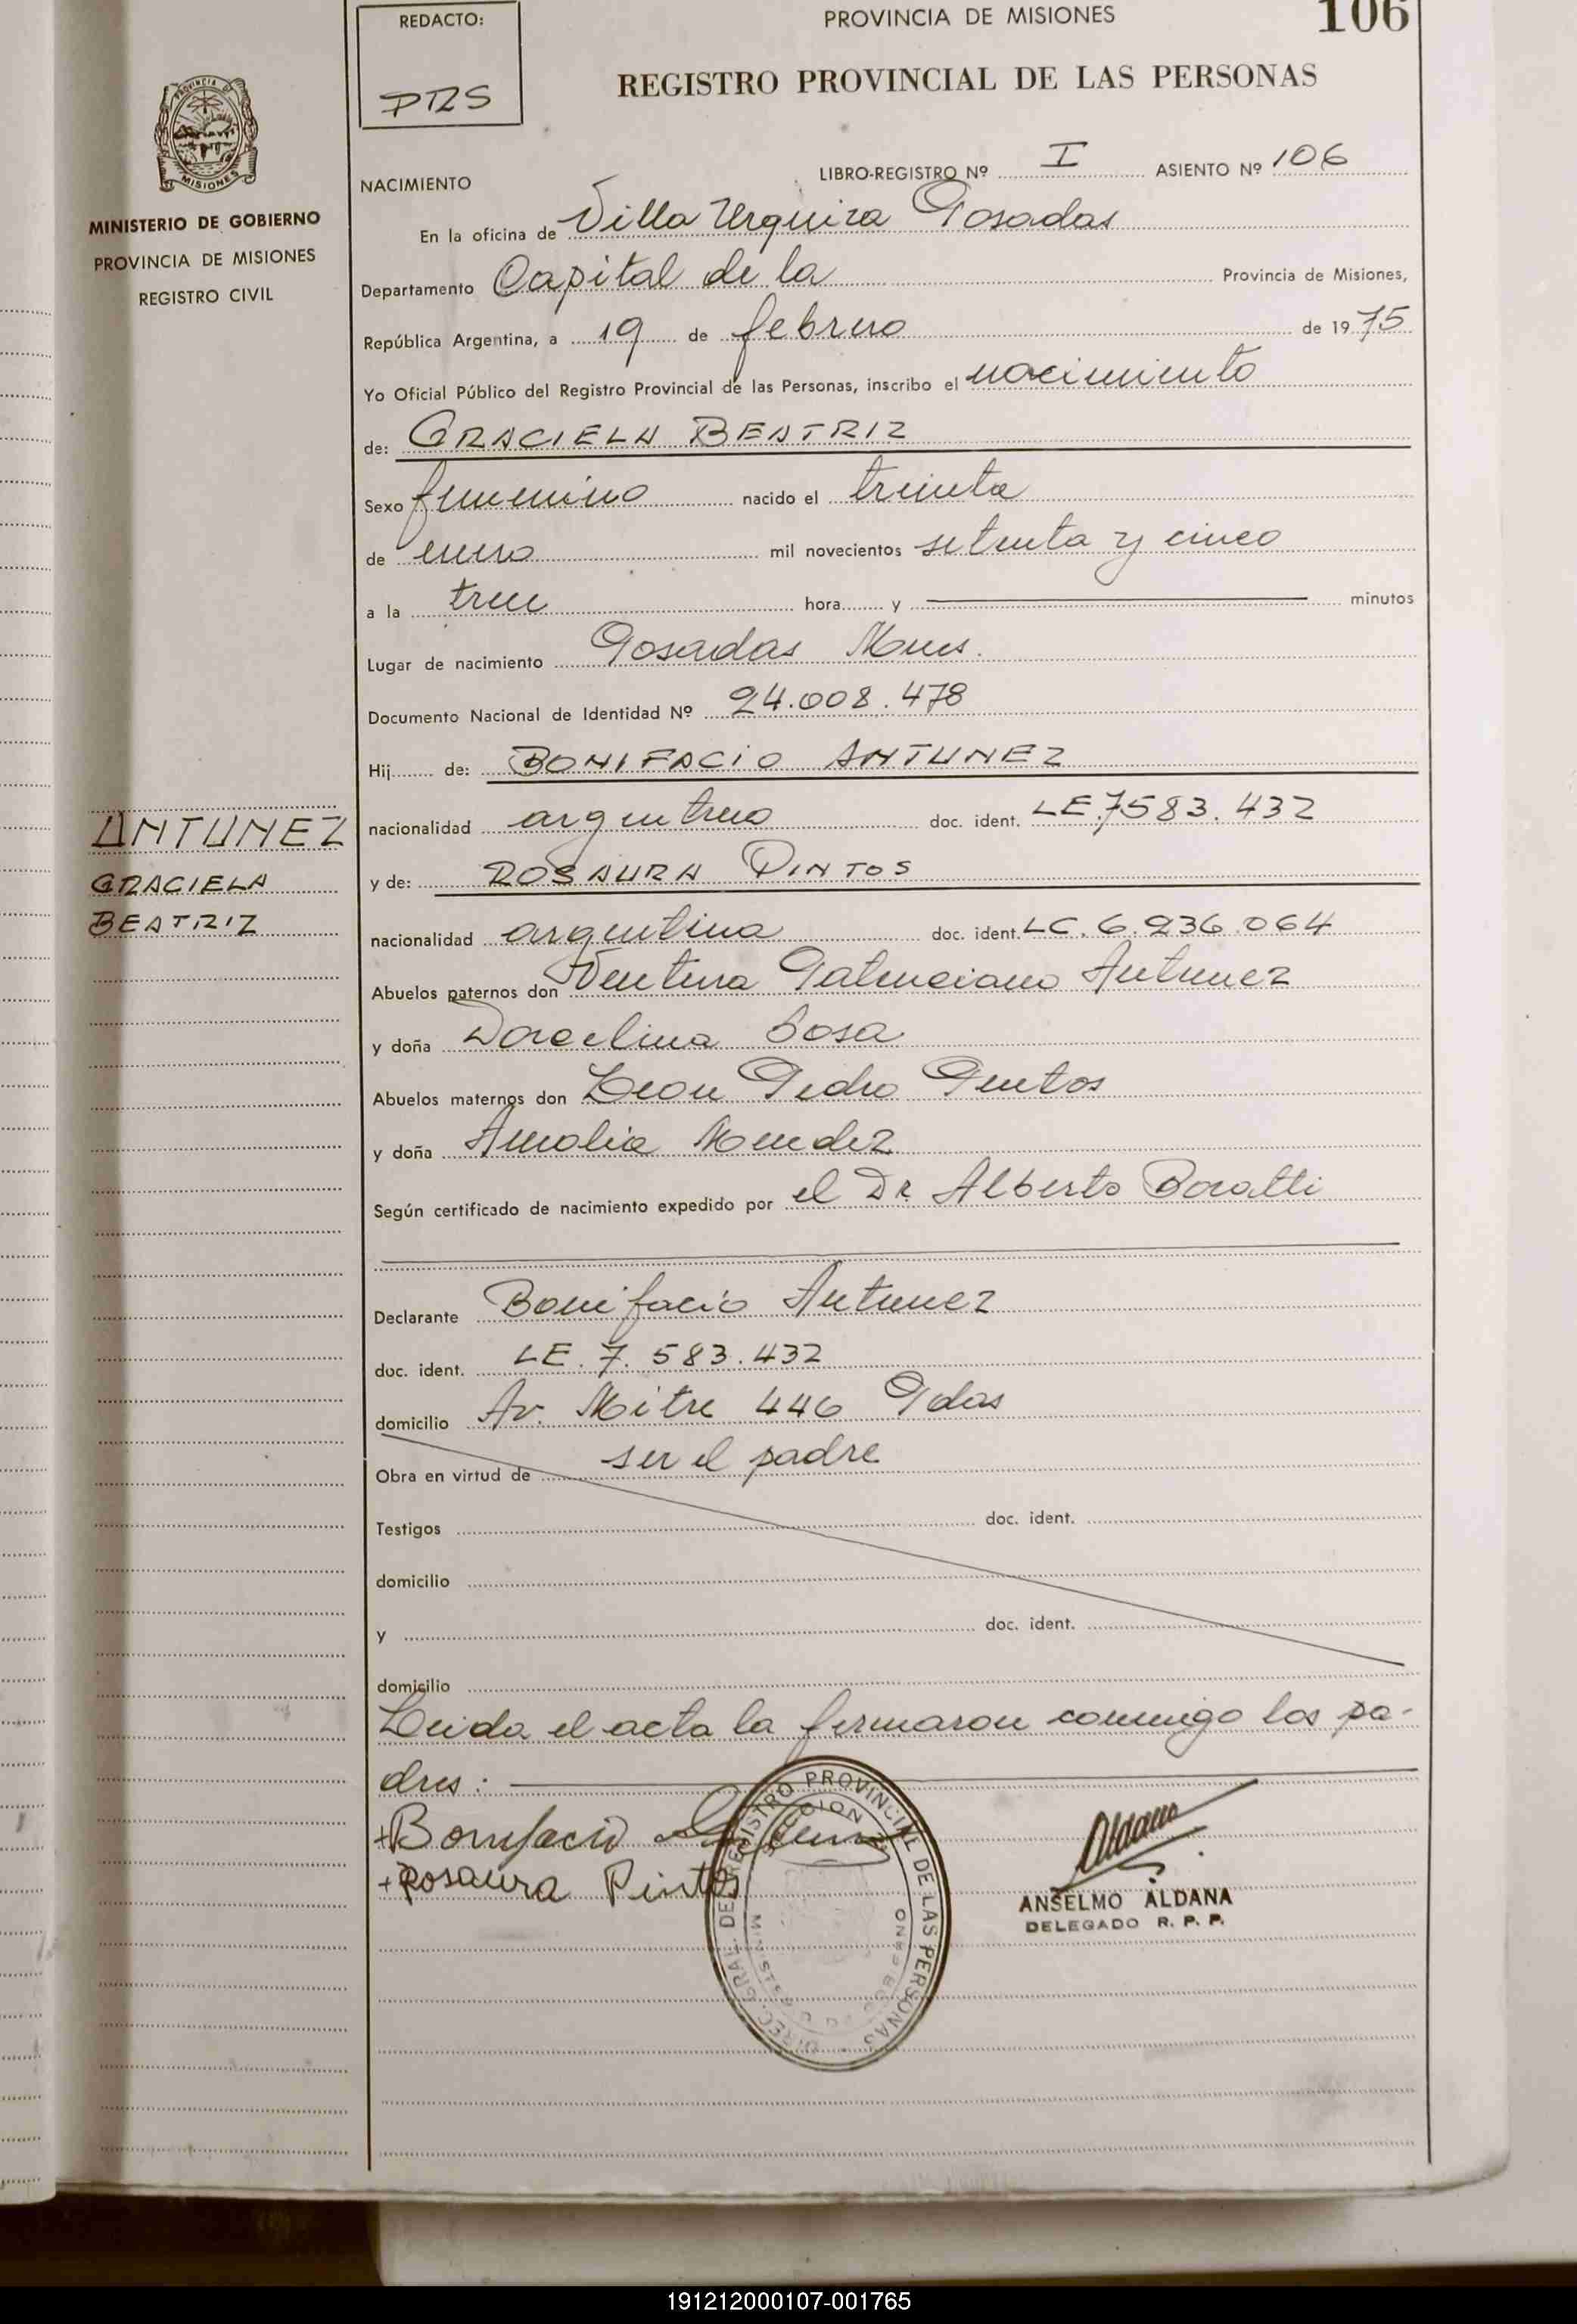 REDACTO:
PRS
PROVINCIA DE MISIONES
106
REGISTRO PROVINCIAL DE LAS PERSONAS
PROVINCIA DE
MISIONES
MINISTERIO DE GOBIERNO
PROVINCIA DE MISIONES
REGISTRO CIVIL
LIBRO-REGISTRO Nº I ASIENTO Nº 106
NACIMIENTO
En la oficina de Villa Urquiza Posadas
Departamento Capital de la Provincia de Misiones,
República Argentina, a 19 de febrero de 1975
Yo Oficial Público del Registro Provincial de las Personas, inscribo el nacimiento
de: GRACIELA BEATRIZ
Sexo femenino nacido el treinta
de enero mil novecientos setenta y cinco
a la trece hora y minutos
Lugar de nacimiento Posadas Mnes.
Documento Nacional de Identidad Nº 24.008.478
Hij de: BONIFACIO ANTUNEZ
nacionalidad argentino doc. ident. LE.7583.432
y de: ROSAURA PINTOS
nacionalidad argentina doc. ident. LC.6.236.064
Abuelos paternos don Ventura Patrociano Antunez
y doña Doraelina Sosa
Abuelos maternos don Leon Pedro Pintos
y doña Amalia Mendez
Según certificado de nacimiento expedido por el Dr Alberto
Declarante Bonifacio Antunez
doc. ident. LE.7.583.432
domicilio Av. Mitre 446 Pdas
Obra en virtud de ser el padre
Testigos doc. ident.
domicilio
y doc. ident.
domicilio
Leida el acta la firmaron conmigo los pa-
dres:
ANTUNEZ
GRACIELA
BEATRIZ
+Bonifacio
+Rosaura Pintos
DIREC. GRAL. DEL REGISTRO PROVINCIAL DE LAS PERSONAS
Aldana
ANSELMO ALDANA
DELEGADO R. P. P.
191212000107-001765